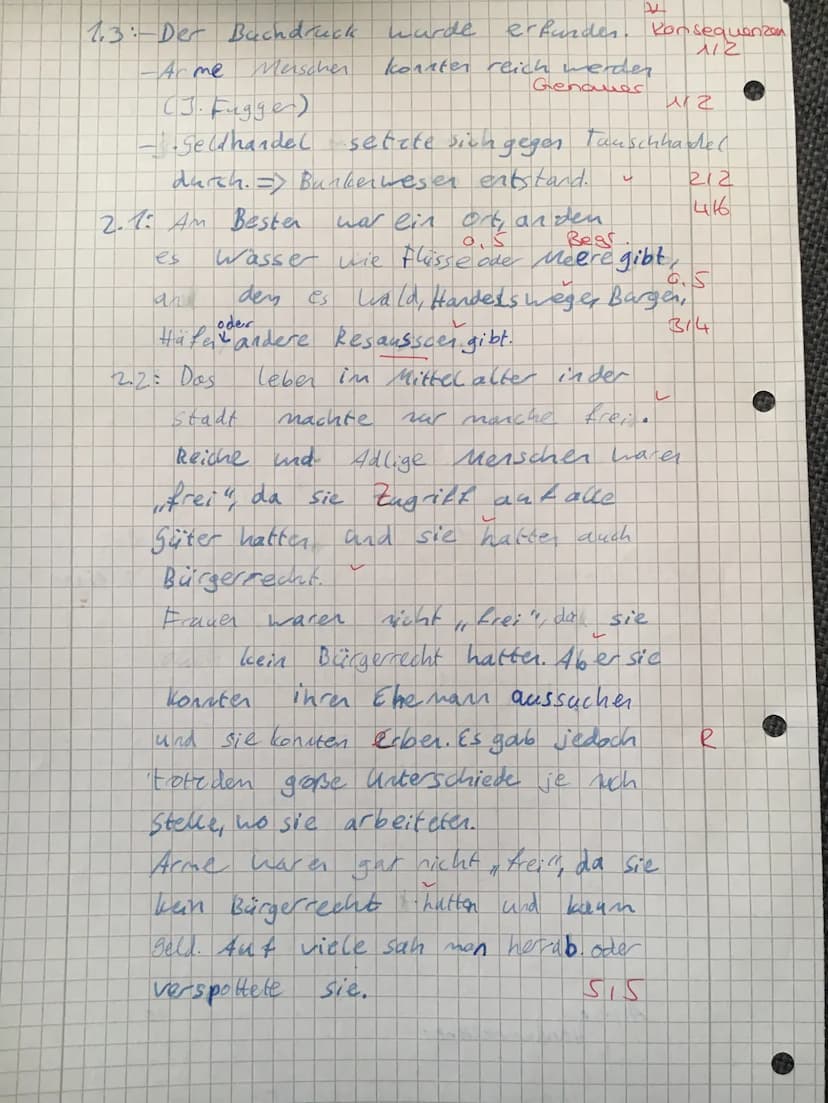 1.3:- Der Buchdruck wurde erfunden. Konsequenzen
1/2
- Arme Menschen konnten reich werden
Genaues
(J. Fugger) 1/2
- Geldhandel setzte sich gegen Tauschhandel
durch. => Bunkerwesen entstand. 2/2
4/6
2.1: Am Besten war ein Ort, an den
0,5 Begr.
es Wasser wie Flüsse oder Meere gibt,
0,5
an dem es Wald, Handelswege, Bargen,
oder 3/4
Häfen andere Resausscen gibt.
2.2: Das leben im Mittelalter in der
Stadt machte nur manche frei.
Reiche und Adlige Menschen waren
„frei“, da sie Zugriff auf alle
Güter hatten und sie hatten auch
Bürgerrecht.
Frauen waren nicht „frei“, da sie
kein Bürgerrecht hatten. Aber sie
konnten ihren Ehemann aussuchen
und sie konnten Erben. Es gab jedoch R
trotzdem große Unterschiede je nch
Stelle, wo sie arbeiteten.
Arme waren gar nicht „frei“, da sie
kein Bürgerrecht hatten und kaum
Geld. Auf viele sah man herrab oder
verspottete sie. 5,5